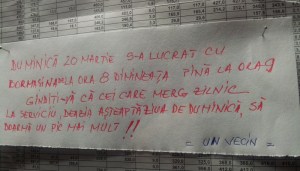 DUMINICĂ 20 MARTIE S-A LUCRAT CU
BORMAȘINA LA ORA 8 DIMINEAȚA PÎNĂ LA ORA 9
GÎNDIȚI-VĂ CĂ CEI CARE MERG ZILNIC
LA SERVICIU, DEABIA AȘTEAPTĂ ZIUA DE DUMINICĂ, SĂ
DOARMĂ UN PIC MAI MULT!!
= UN VECIN =